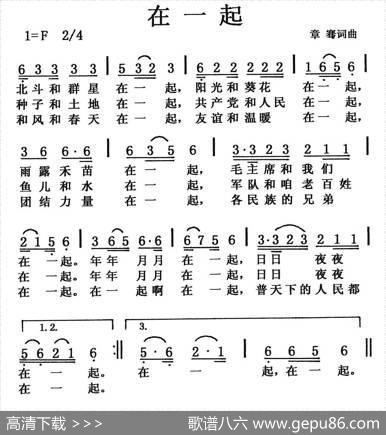 在一起
1=F 2/4 章 骞词曲
6 3 3 3 3 | 5 3 2 3 | 3 3 3 3 3 | 1 6 5 6 |
北斗和群星 在一起,阳光和葵花 在一起,
种子和土地 在一起,共产党和人民 在一起,
和风和春天 在一起,友谊和温暖 在一起,
3 6 6·6 | 6 3 5 6 | 3·3 2 3 2 1 1 |
雨露禾苗 在一起,毛主席和我们
鱼儿和水 在一起,军队和咱老百姓
团结力量 在一起,各民族的兄弟
2 1 5 6 | 3 6 5 6·6 | 6 7 5 6 | 3·3 2 3 2 1 1 |
在一起。年年 月月 在一起,日日 夜夜
在一起。年年 月月 在一起,日日 夜夜
在一起。在一 起啊 在一起,普天下的人民都
1. 2. 3.
5 6 2 1 6 :‖ 5·6 2·1 | 6 6 5 6 ‖
在一起。 在 一 起。在一起。
在一起。
高清下载 >>> 歌谱八六 www.gepu86.com